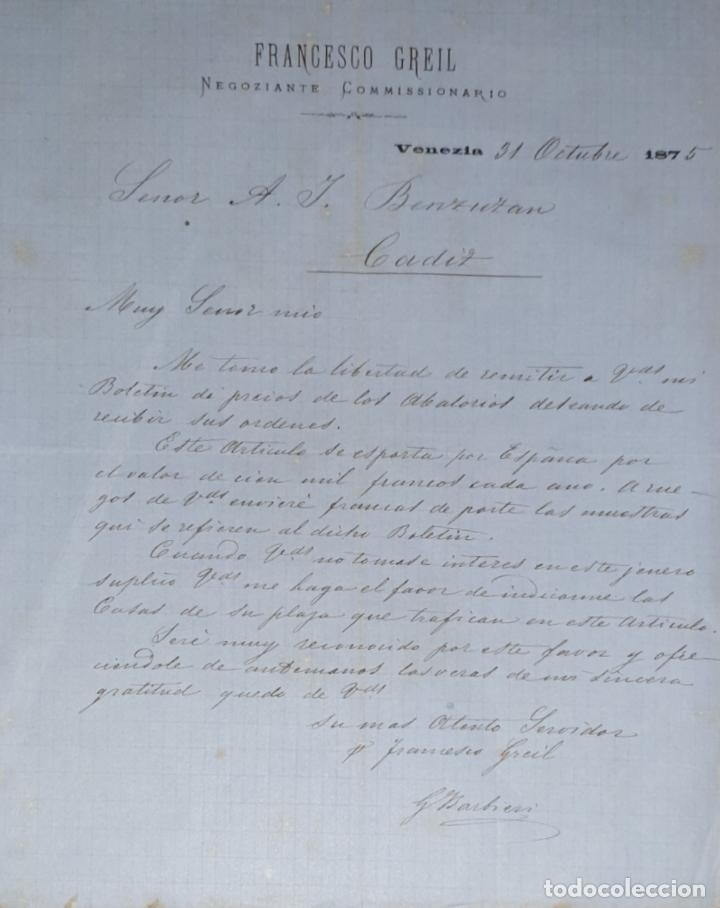 FRANCESCO GREIL
NEGOZIANTE COMMISSIONARIO
Venezia 31 Octubre 1875
Senor A. J. Benzuzan
Cadiz
Muy Senor mio
Me tomo la libertad de remitir a Vds mi
Boletin di precios de los Abalorios deseando de
recibir sus ordenes.
Este Articulo se esporta por España por
el valor de cien mil francos cada ano. A rue-
gos de Vds envieré francas de porte las muestras
qui se refieren al dicho Boletin.
Cuando Vds no tomase interes en este jenero
suplico Vds me haga el favor de indicarme las
Casas de su plaza que trafican en este Articulo.
Seré muy reconocido por este favor y ofre-
ciendole de antemanos las veras de mi sincera
gratitud quedo de Vds
su mas Atento Servidor
p Francesco Greil
G Barbieri
todocoleccion